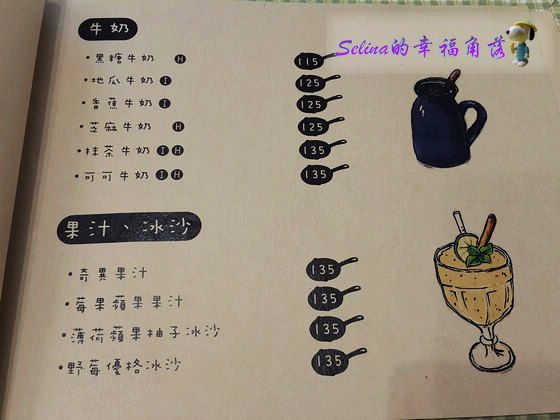 Selina的幸福角落
牛奶
•黑糖牛奶 H 115
•地瓜牛奶 I 125
•香蕉牛奶 I 125
•芝麻牛奶 H 125
•抹茶牛奶 I H 135
•可可牛奶 I H 135
果汁、冰沙
•奇異果汁 135
•莓果蘋果果汁 135
•薄荷蘋果柚子冰沙 135
•野莓優格冰沙 135